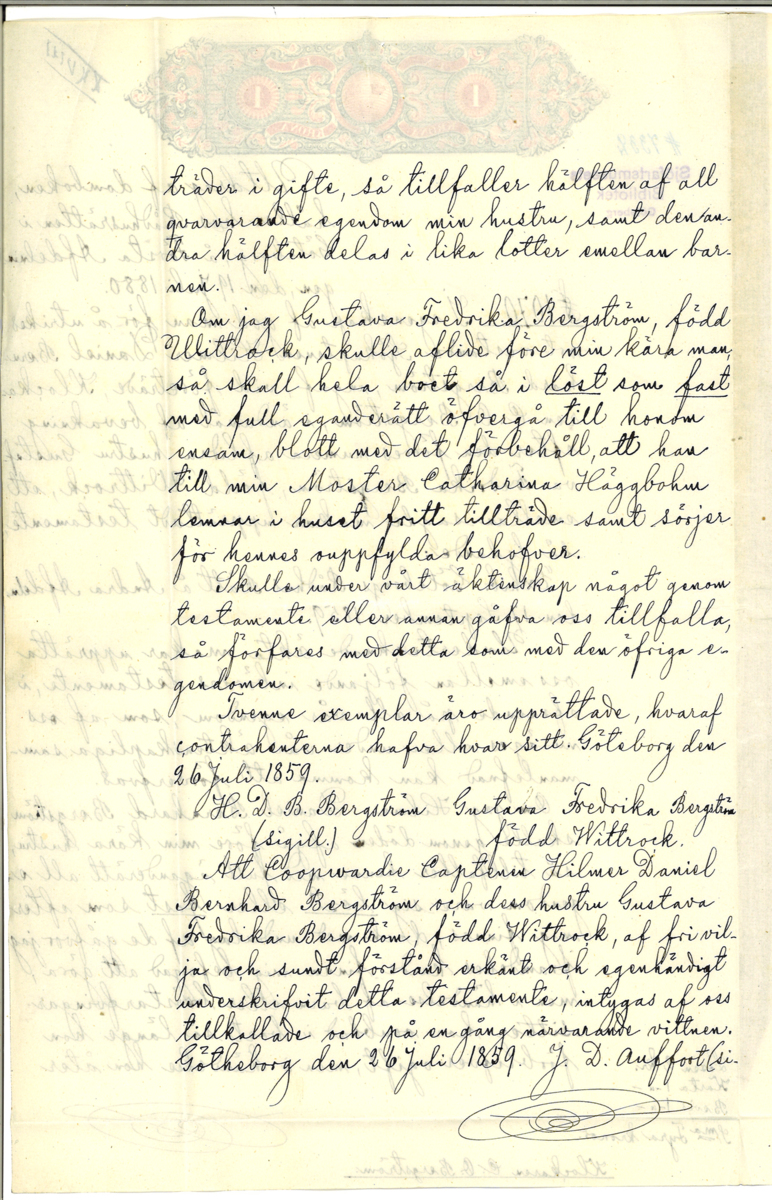 träder i gifte, så tillfaller hälften af all
qvarvarande egendom min hustru, samt den an-
dra hälften delas i lika lotter emellan bar-
nen.
Om jag Gustava Fredrika Bergström, född
Wittrock, skulle aflide före min kära man,
så skall hela boet så i löst som fast
med full eganderätt öfvergå till honom
ensam, blott med det förbehåll, att han
till min Moster Catharina Häggbohm
lemnar i huset fritt tillträde samt sörjer
för hennes ouppfylda behofver.
Skulle under vårt äktenskap något genom
testamente eller annan gåfva oss tillfalla,
så förfares med detta som med den öfriga e-
gendomen.
Tvenne exemplar äro upprättade, hvaraf
contrahenterna hafva hvar sitt. Göteborg den
26 Juli 1859.
H. D. B. Bergström Gustava Fredrika Bergström
(sigill.) född Wittrock.
Att Coopwardie Captenen Hilmer Daniel
Bernhard Bergström och dess hustru Gustava
Fredrika Bergström, född Wittrock, af fri vil-
ja och sundt förstånd erkänt och egenhändigt
underskrifvit detta testamente, intygas af oss
tillkallade och på en gång närvarande vittnen.
Götheborg den 26 Juli 1859. J. D. Auffort (si-